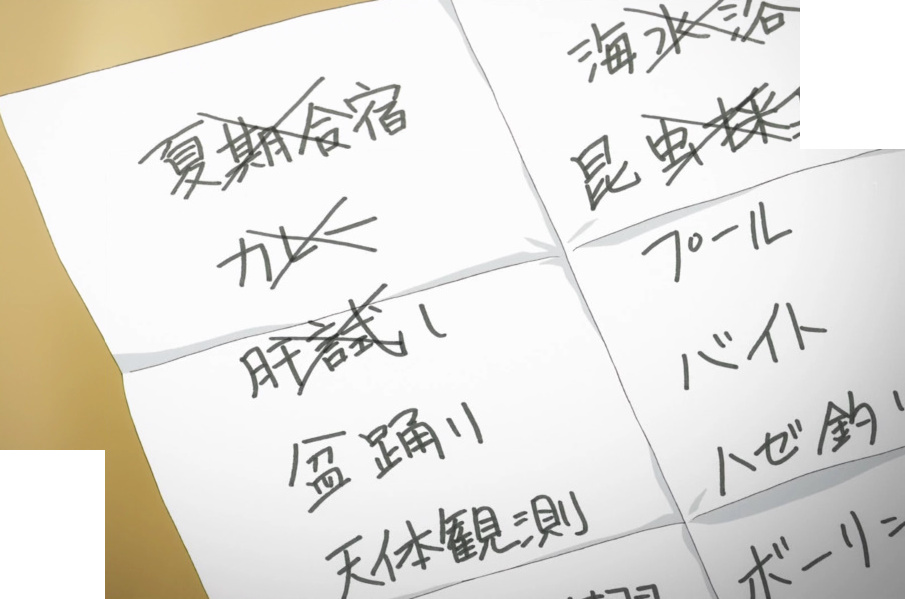 夏期合宿
カレー
肝試し
盆踊り
天体観測
海水浴
昆虫採
プール
バイト
ハゼ釣り
ボーリン